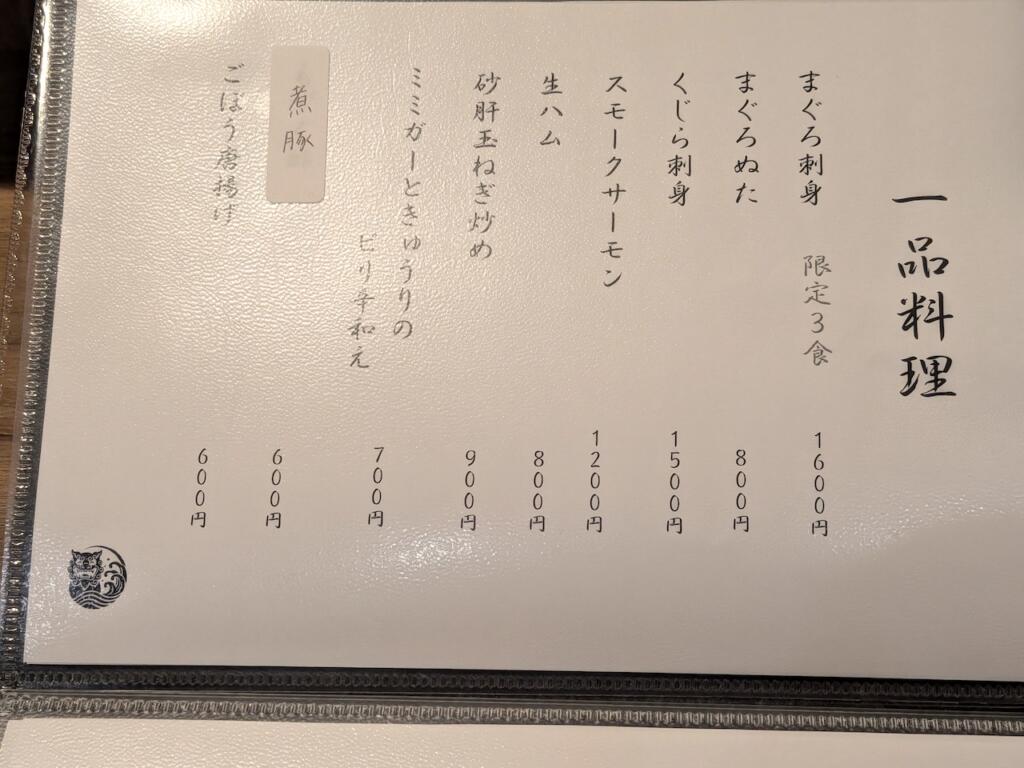 一品料理
まぐろ刺身 限定3食 1600円
まぐろぬた 800円
くじら刺身 1500円
スモークサーモン 1200円
生ハム 800円
砂肝玉ねぎ炒め 900円
ミミガーときゅうりの
ピリ辛和え 700円
煮豚 600円
ごぼう唐揚げ 600円